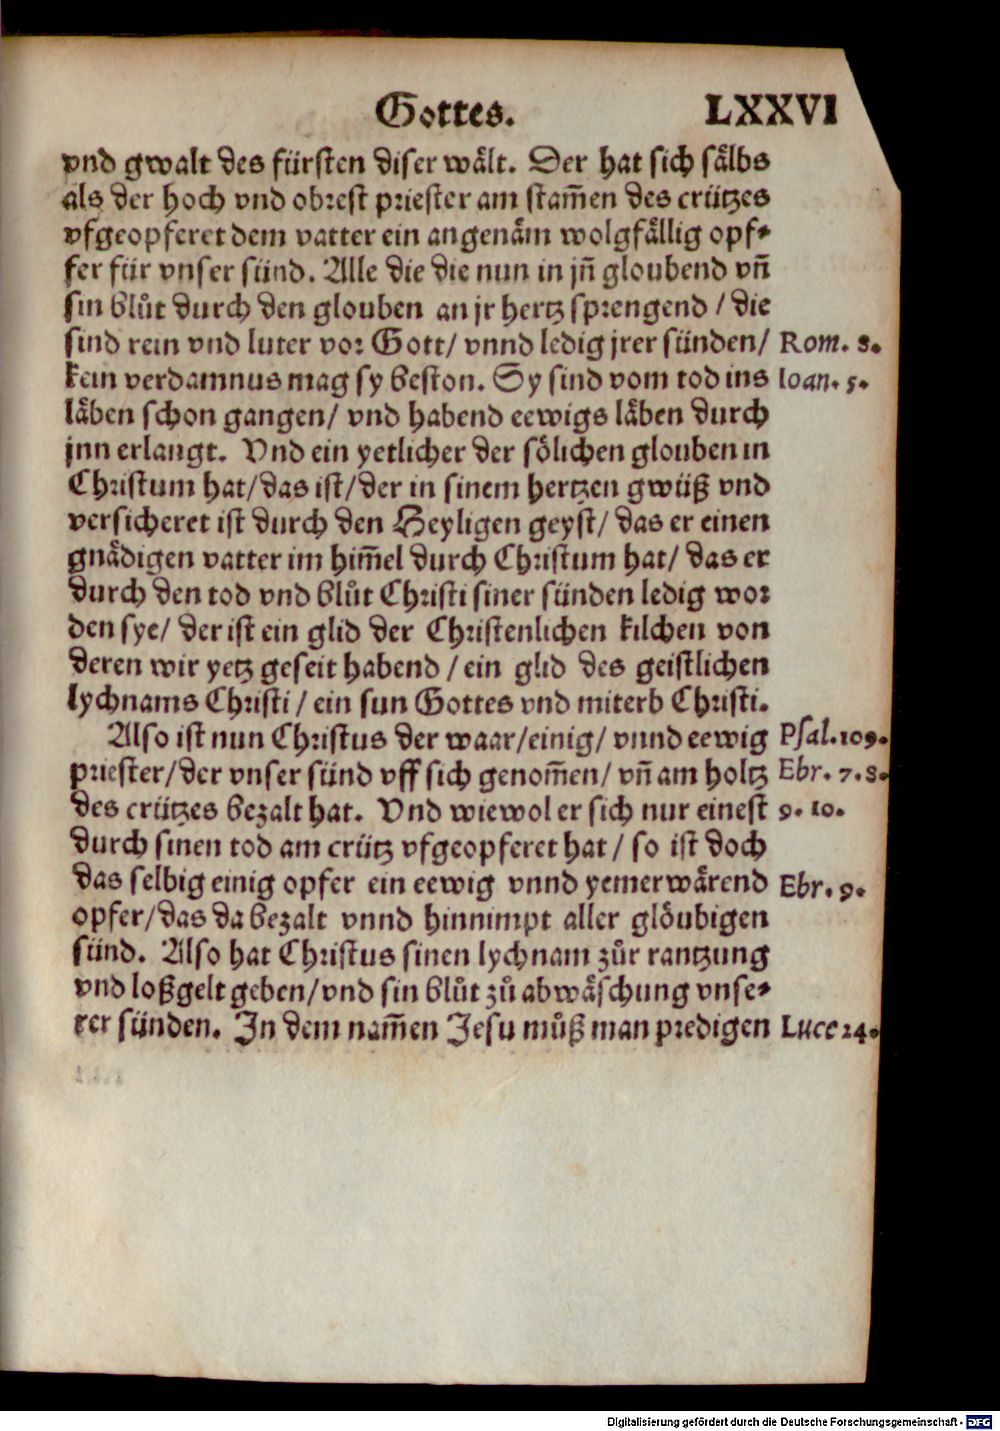 Gottes. LXXVI
vnd gwalt des fürsten diser wält. Der hat sich sälbs
als der hoch vnd obrest priester am stam̃en des crützes
vfgeopferet dem vatter ein angenäm wolgfällig opf⸗
fer für vnser sünd. Alle die die nun in jñ gloubend vñ
sin blůt durch den glouben an jr hertz sprengend / die
sind rein vnd luter vor Gott/ vnnd ledig jrer sünden/ Rom. 8.
kein verdamnus mag sy beston. Sy sind vom tod ins Ioan. 5.
läben schon gangen/ vnd habend eewigs läben durch
jnn erlangt. Vnd ein yetlicher der sölichen glouben in
Christum hat/das ist/der in sinem hertzen gwüß vnd
versicheret ist durch den Heyligen geyst/ das er einen
gnädigen vatter im him̃el durch Christum hat/ das er
durch den tod vnd blůt Christi siner sünden ledig wor
den sye/ der ist ein glid der Christenlichen kilchen von
deren wir yetz geseit habend / ein glid des geistlichen
lychnams Christi / ein sun Gottes vnd miterb Christi.
Also ist nun Christus der waar/einig/ vnnd eewig Psal.109.
priester/der vnser sünd vff sich genom̃en/ vñ am holtz Ebr. 7. 8.
des crützes bezalt hat. Vnd wiewol er sich nur einest 9. 10.
durch sinen tod am crütz vfgeopferet hat / so ist doch
das selbig einig opfer ein eewig vnnd yemerwärend Ebr. 9.
opfer/das da bezalt vnnd hinnimpt aller glöubigen
sünd. Also hat Christus sinen lychnam zůr rantzung
vnd loßgelt geben/vnd sin blůt zů abwäschung vnse⸗
rer sünden. In dem nam̃en Jesu můß man predigen Luce 24.
Digitalisierung gefördert durch die Deutsche Forschungsgemeinschaft - DFG